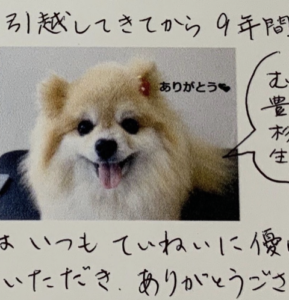 引越してきてから9年間
ありがとう♥
む
豊
杉
生
は いつも ていねいに優
いただき、ありがとうござ